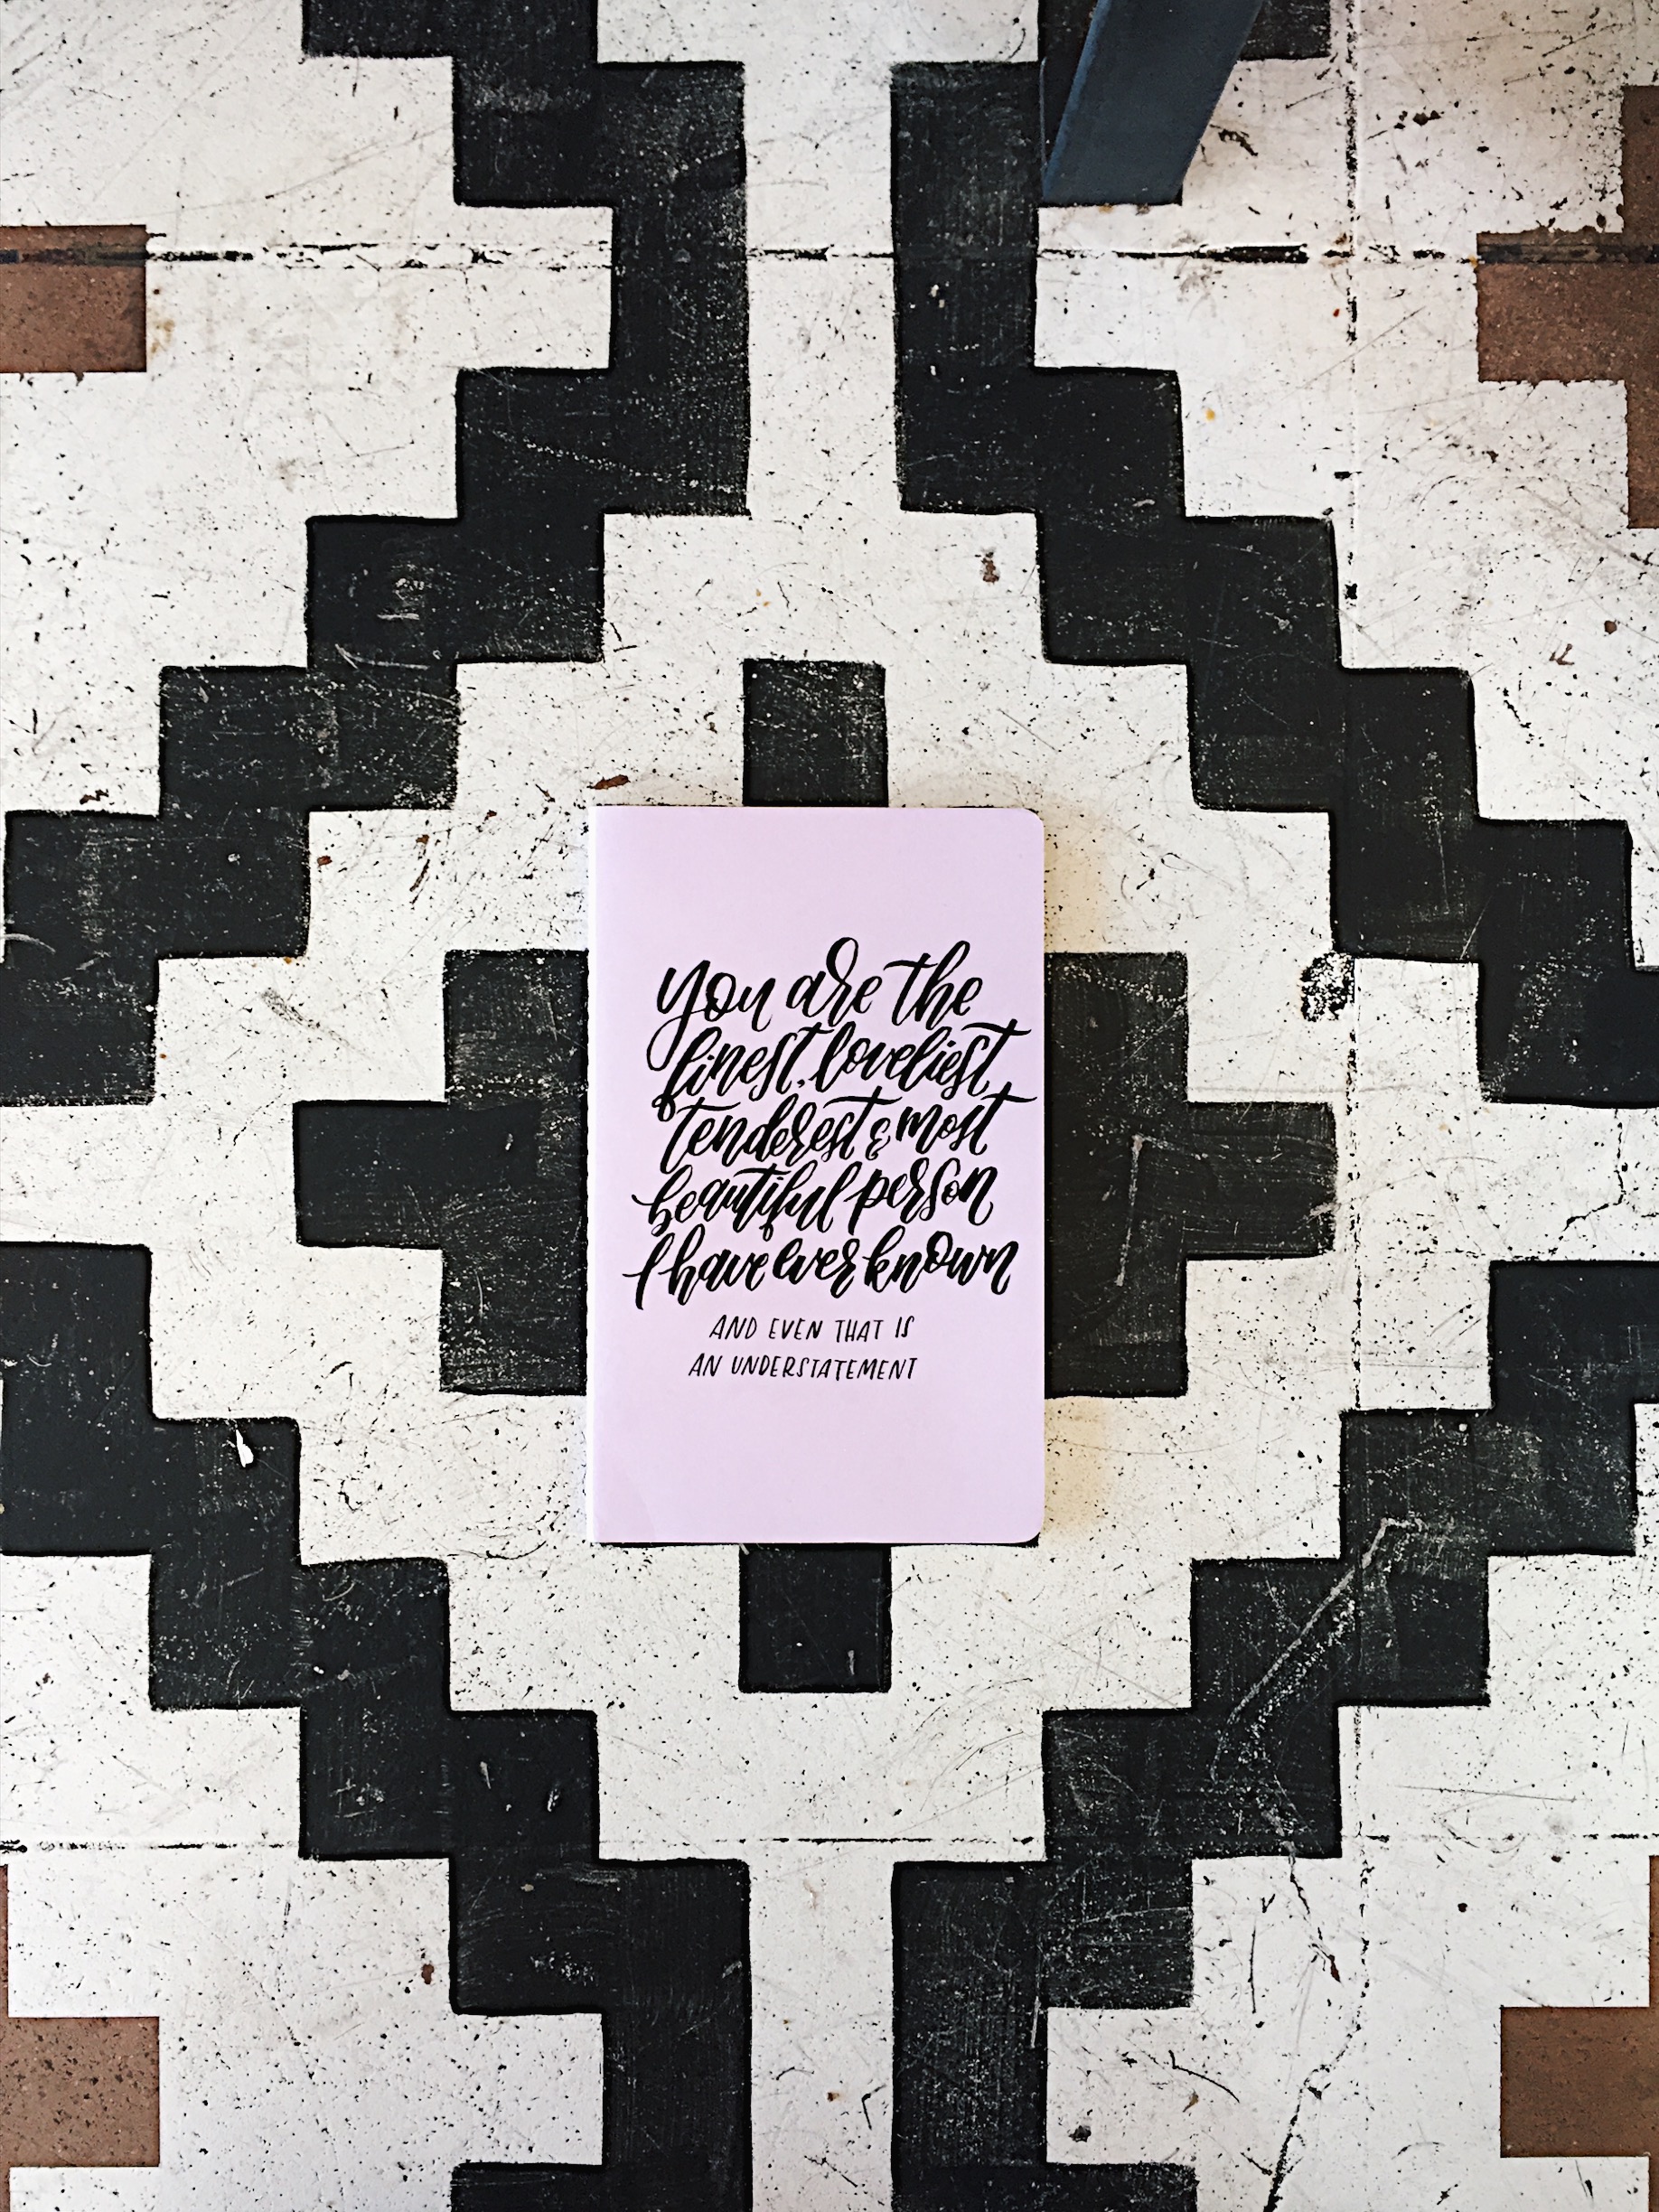 you are the
finest, loveliest
tenderest & most
beautiful person
I have ever known
AND EVEN THAT IS
AN UNDERSTATEMENT